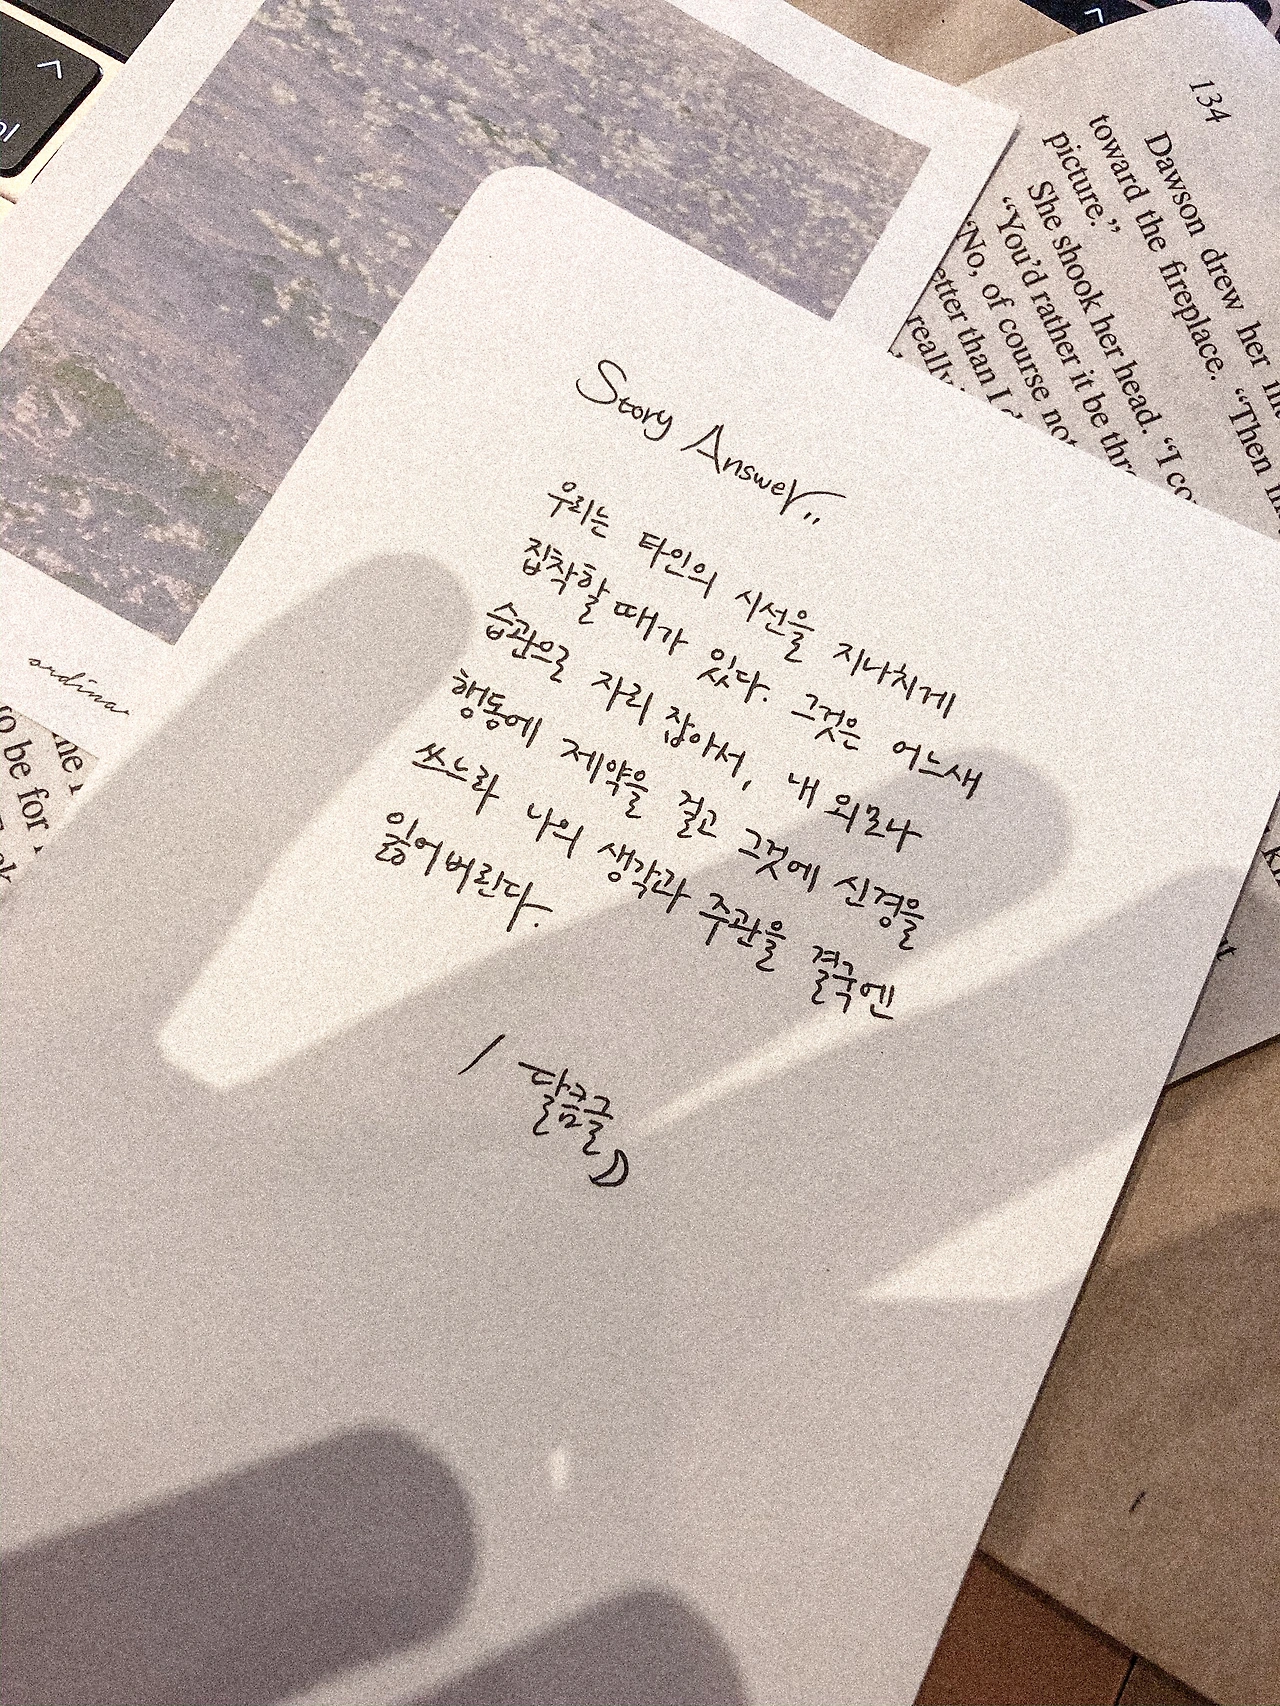 Story Answer..
우리는 타인의 시선을 지나치게
집착할 때가 있다. 그것은 어느새
습관으로 자리 잡아서, 내 외모나
행동에 제약을 걸고 그것에 신경을
쓰느라 나의 생각과 주관을 결국엔
잃어버린다.
/ 달음글
134
Dawson drew her
toward the fireplace. “Then
picture.”
She shook her head. “I
“You'd rather it be
“No, of course not
than I
really
ordinar
to be for